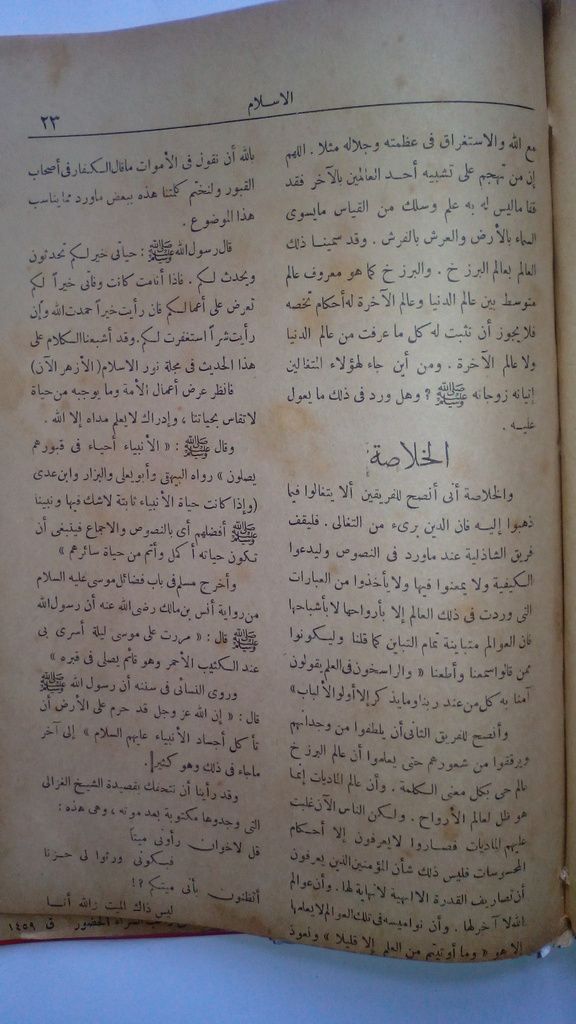 الاسلام
٢٣
مع الله والاستغراق فى عظمته وجلاله مثلا . اللهم
إن من تهجم على تشبيه أحد العالمين بالآخر فقد
قفا ماليس له به علم وسلك من القياس مايسوى
السماء بالأرض والعرش بالفرش . وقد سمينا ذلك
العالم بعالم البرزخ . والبرزخ كما هو معروف عالم
متوسط بين عالم الدنيا وعالم الآخرة له أحكام تخصه
فلا يجوز أن تثبت له كل ما عرفت من عالم الدنيا
ولا عالم الآخرة . ومن أين جاء لهؤلاء المتغالين
إتيانه زوجاته ﷺ ؟ وهل ورد فى ذلك ما يعول
عليه .
الخلاصة
والخلاصة أنى أنصح للفريقين ألا يتغالوا فيما
ذهبوا إليه فان الدين برىء من التغالى . فليقف
فريق الشاذلية عند ماورد فى النصوص وليدعوا
الكيفية ولا يمعنوا فيها ولا يأخذوا من العبارات
التى وردت فى ذلك العالم إلا بأرواحها لا بأشباحها
فان العوالم متباينة تمام التباين كما قلنا وليكونوا
ممن قالوا سمعنا وأطعنا « والراسخون فى العلم يقولون
آمنا به كل من عند ربنا وما يذكر إلا أولو الألباب »
وأنصح للفريق الثانى أن يلطفوا من وجداتهم
ويرفقوا من شعورهم حتى يعلموا أن عالم البرزخ
عالم حى بكل معنى الكلمة . وأن عالم الماديات إنما
هو ظل لعالم الأرواح . ولكن الناس الآن غلبت
عليهم الماديات فصاروا لا يعرفون إلا أحكام
المحسوسات فليس ذلك شأن المؤمنين الذين يعرفون
أن تصاريف القدرة الالهية لا نهاية لها . وأن عوالم
الله لا آخر لها . وأن نواميسه فى تلك العوالم لا يعلمها
إلا هو « وما أوتيتم من العلم إلا قليلا » ونعوذ
بالله أن نقول فى الأموات ماقال الكفار فى أصحاب
القبور ولنختم كلمتنا هذه ببعض ماورد مما يناسب
هذا الموضوع .
قال رسول الله ﷺ : حياتى خير لكم تحدثون
ويحدث لكم . فاذا أنامت كانت وفاتى خيراً لكم
تعرض على أعمالكم فان رأيت خيراً حمدت الله وإن
رأيت شراً استغفرت لكم . وقد أشبعنا الكلام على
هذا الحديث فى مجلة نور الاسلام ( الأزهر الآن )
فانظر عرض أعمال الأمة وما يوجبه من حياة
لا تقاس بحياتنا ، وإدراك لا يعلم مداه إلا الله .
وقال ﷺ : « الأنبياء أحياء فى قبورهم
يصلون » رواه البيهقى وأبو يعلى والبزار وابن عدى
( وإذا كانت حياة الأنبياء ثابتة لاشك فيها ونبينا
ﷺ أفضلهم أى بالنصوص والاجماع فينبغى أن
تكون حياته أكمل وأتم من حياة سائرهم »
وأخرج مسلم فى باب فضائل موسى عليه السلام
من رواية أنس بن مالك رضى الله عنه أن رسول الله
ﷺ قال : « مررت على موسى ليلة أسرى بى
عند الكثيب الأحمر وهو قائم يصلى فى قبره »
وروى النسائى فى سننه أن رسول الله ﷺ
قال : « إن الله عز وجل قد حرم على الأرض أن
تأكل أجساد الأنبياء عليهم السلام » إلى آخر
ماجاء فى ذلك وهو كثير .
وقد رأينا أن نتحفك بقصيدة الشيخ الغزالى
التى وجدوها مكتوبة بعد موته ، وهى هذه :
قل لاخوان رأونى ميتاً
فبكونى ورثوا لى حزنا
أتظنون بأنى ميتكم ؟ !
ليس ذاك الميت والله أنا
ق ١٤٥٩